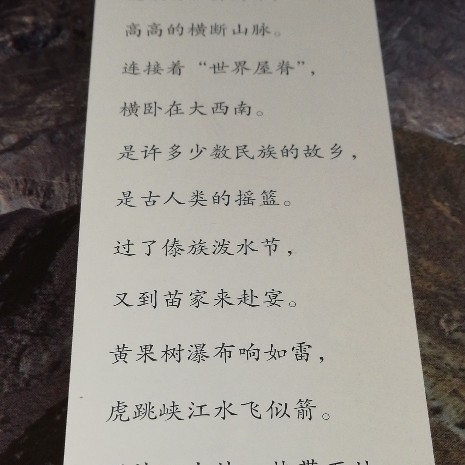 高高的横断山脉。
连接着“世界屋脊”，
横卧在大西南。
是许多少数民族的故乡，
是古人类的摇篮。
过了傣族泼水节，
又到苗家来赴宴。
黄果树瀑布响如雷，
虎跳峡江水飞似箭。